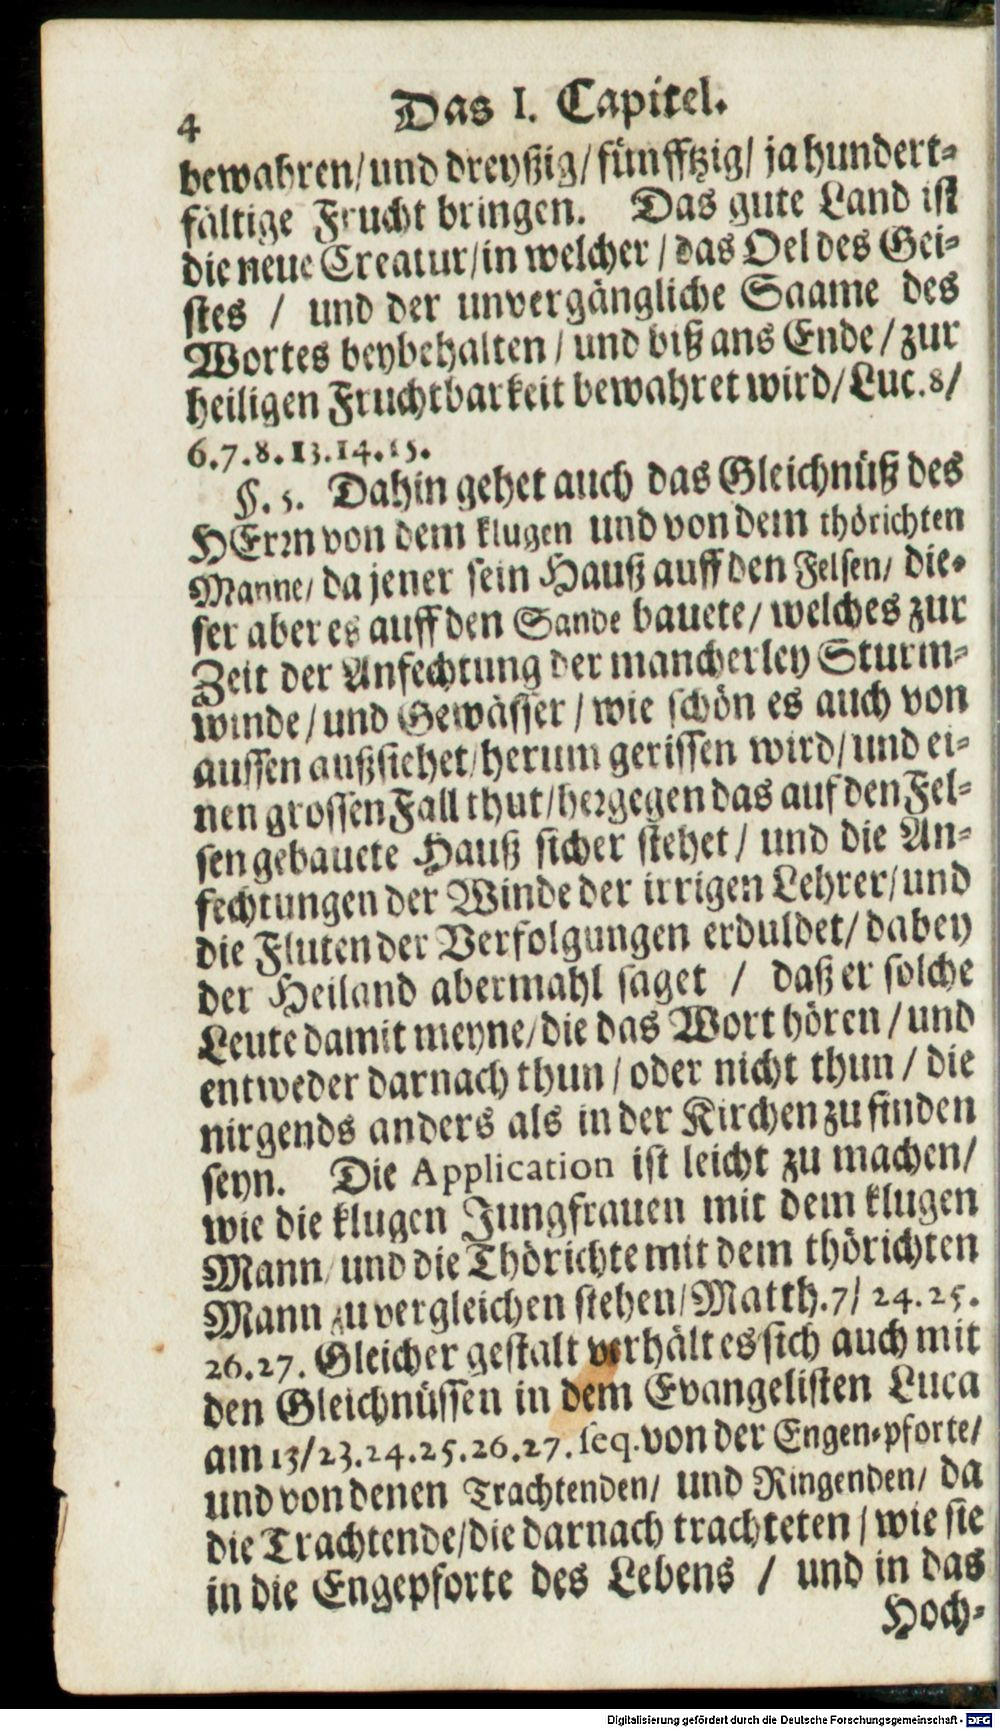 4 Das I. Capitel.
bewahren/ und dreyßig/ fünfftzig/ ja hundert-
fältige Frucht bringen. Das gute Land ist
die neue Creatur/ in welcher / das Oel des Gei-
stes / und der unvergängliche Saame des
Wortes beybehalten / und biß ans Ende / zur
heiligen Fruchtbarkeit bewahret wird/ Luc. 8/
6. 7. 8. 13. 14. 15.
§. 5. Dahin gehet auch das Gleichnüß des
HErrn von dem klugen und von dem thörichten
Manne/ da jener sein Hauß auff den Felsen/ die-
ser aber es auff den Sande bauete/ welches zur
Zeit der Anfechtung der mancherley Sturm-
winde / und Gewässer / wie schön es auch von
aussen außsiehet/ herum gerissen wird/ und ei-
nen grossen Fall thut/ hergegen das auf den Fel-
sen gebauete Hauß sicher stehet / und die An-
fechtungen der Winde der irrigen Lehrer/ und
die Fluten der Verfolgungen erduldet/ dabey
der Heiland abermahl saget / daß er solche
Leute damit meyne/ die das Wort hören / und
entweder darnach thun / oder nicht thun / die
nirgends anders als in der Kirchen zu finden
seyn. Die Application ist leicht zu machen/
wie die klugen Jungfrauen mit dem klugen
Mann/ und die Thörichte mit dem thörichten
Mann zu vergleichen stehen/ Matth. 7/ 24. 25.
26. 27. Gleicher gestalt verhält es sich auch mit
den Gleichnüssen in dem Evangelisten Luca
am 13/ 23. 24. 25. 26. 27. seq. von der Engen-pforte/
und von denen Trachtenden/ und Ringenden/ da
die Trachtende/ die darnach trachteten / wie sie
in die Engepforte des Lebens / und in das
Hoch-
Digitalisierung gefördert durch die Deutsche Forschungsgemeinschaft - DFG